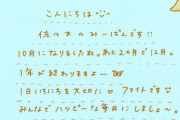 こんにちは
佐々木のみーぱんです!!
10月になりましたね。あと2ヶ月で12月。
1年が終わりますよ〜
1日1日を大切に ファイトです
みんなでハッピーな毎日にしましょ〜。